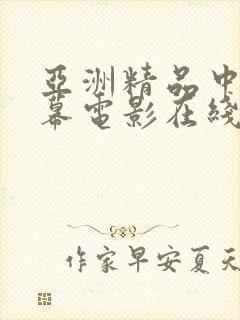 亞洲精品中
幕電影在綫
作家早安夏天